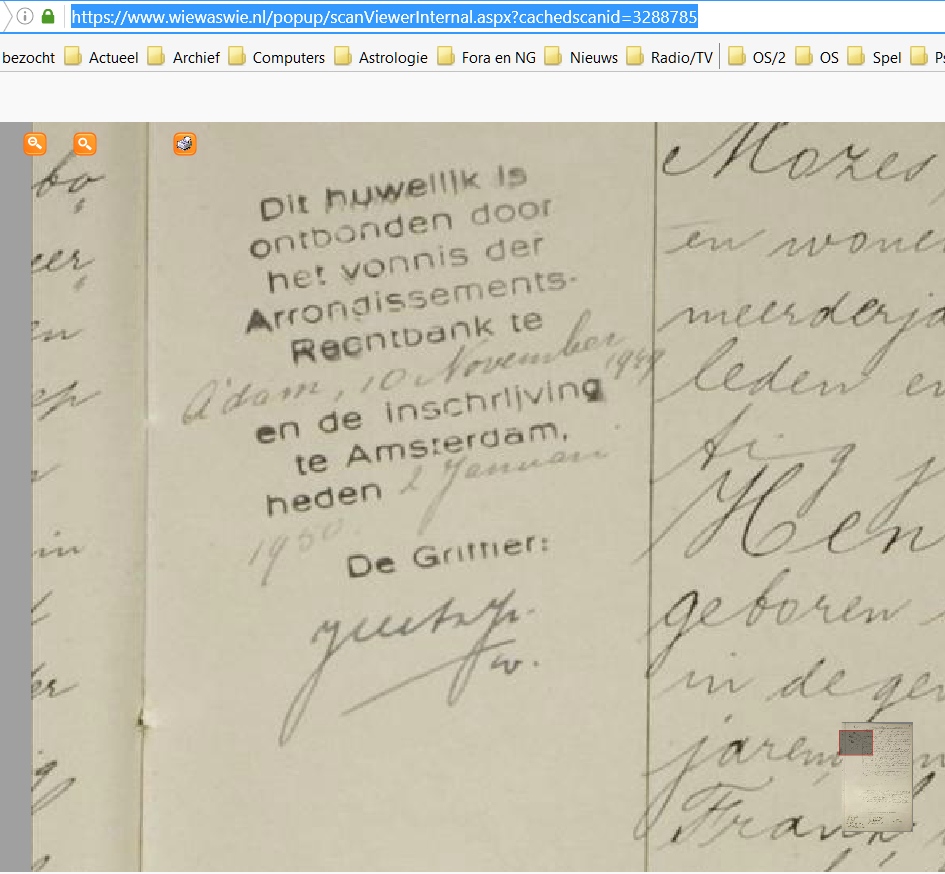 https://www.wiewaswie.nl/popup/scanViewerInternal.aspx?cachedscanid=3288785
bezocht Actueel Archief Computers Astrologie Fora en NG Nieuws Radio/TV OS/2 OS Spel Ps
Dit huwelijk is
ontbonden door
het vonnis der
Arrondissements-
Rechtbank te
A'dam, 10 November 1949
en de inschrijving
te Amsterdam,
heden 2 Januari
1950.
De Griffier:
w.
bo,
eer,
en
ep
in
er
Mozes,
en wone
meerderja
leden en
ting j
Hen
geboren
in de ge
jaren, n
Frank